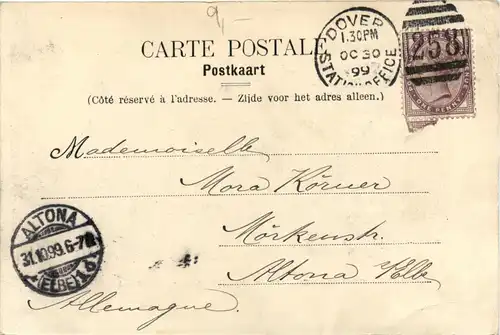 9,-
CARTE POSTALE
Postkaart
(Côté réservé à l'adresse. — Zijde voor het adres alleen.)
DOVER
1.30PM
OC 30
99
STATION OFFICE
258
Mademoiselle
Mora Körner
Mörkenstr.
Altona Elbe
Allemagne.
ALTONA
31.10.99.6-7
(ELBE) 1